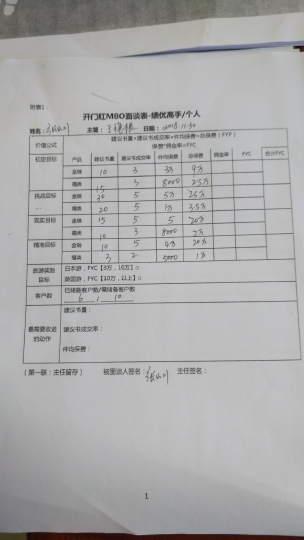 附表1
开门红MBO面谈表-绩优高手/个人
姓名： 主管： 日期：2018.11.30
价值公式 建议书量*建议书成交率*件均保费=总保费（FYP）
保费*佣金率=FYC
初定目标 产品 建议书量 建议书成交率 件均保费 总保费 佣金率 FYC 合计FYC
金瑞 10 3 3万 9万
福类 15 3 8000 2.5万
挑战目标 金瑞 30 5 5万 25万
福类 20 5 1万 3.5万
金瑞 15 5 5 20万
福类 10 3 8000 2万
精准目标 金瑞 10 5 4万 20万
福类 3 2 5000 1万
旅游奖励 日本游，FYC【3万，10万】□
目标 英国游，FYC【10万，以上】□
客户数 已储备客户数/需储备客户数
6 / 10
建议书量：
最需要改进 建议书成交率：
的动作
件均保费：
（第一联：主任留存） 被面谈人签名： 主任签名：
1